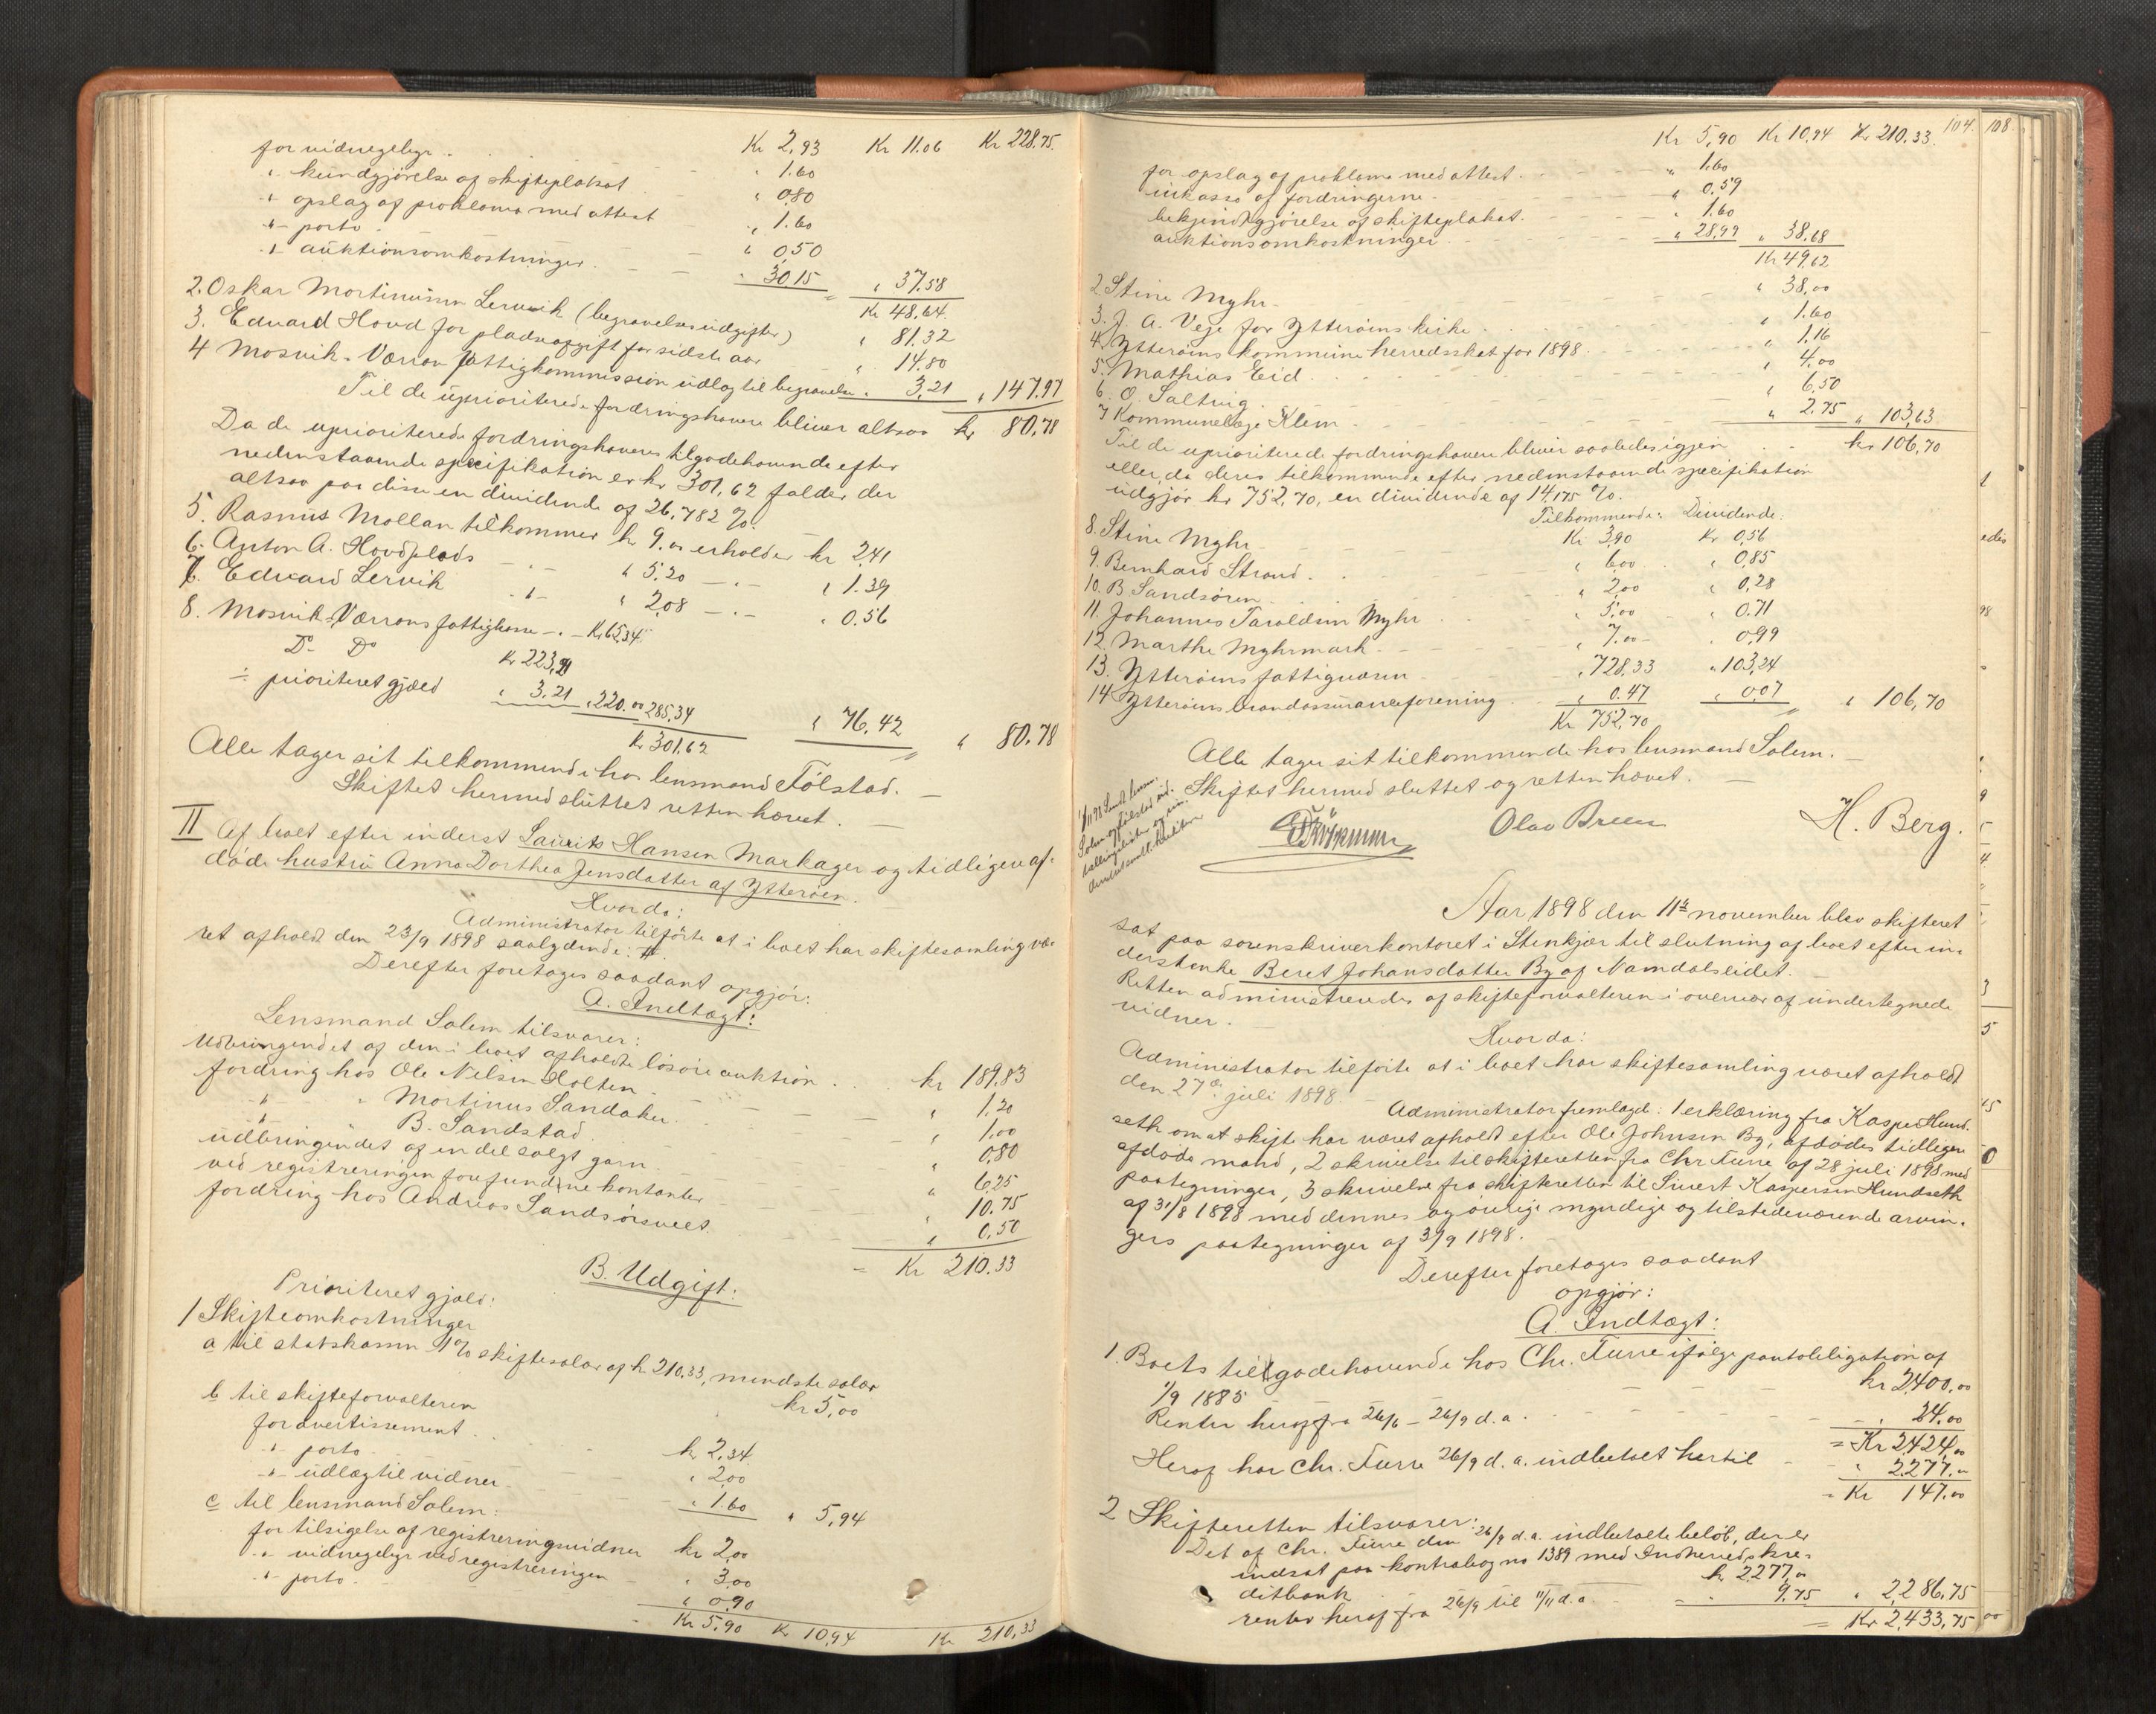 for vidnegebyr . Kr 2,93 Kr 11.06 Kr 228.75.
" kundgjørelse af skifteplakat " 1.60
" opslag af proklama med attest " 0,80
" porto " 1.60
" auktionsomkostninger. " 0,50
" 30,15 " 37.58
Kr 48,64.
2. Oskar Mortinusen Lervik (begravelsesudgifter) " 81.32
3. Edvard Hovd for pladsafgift for sidste aar " 14.80
4 Mosvik-Værran fattigkommission udlæg til begravelse " 3,21 " 147.97
Til de uprioriterede fordringshavere bliver altsaa kr 80,78
Da de uprioriterede fordringshaveres tilgodehavende efter
nedenstaaende specifikation er kr 301,62 falder der
altsaa paa disse en dividende af 26,782 %.
5. Rasmus Mollan tilkommer kr 9.00 erholder kr 2,41
6. Anton A. Hovdplads -"- " 5.20 -"- " 1.39
7. Edvard Lervik -"- " 2,08 -"- " 0.56
8. Mosvik-Værrans fattigkasse -"- Kr 65,34
Do Do Kr 223,21
÷ prioriteret gjæld " 3.21 " 220.00 285,34 " 76,42 " 80.78
Kr 301,62
Alle tager sit tilkommende hos lensmand Følstad.
Skiftet hermed sluttet retten hævet.
II Af boet efter inderst Laurits Hansen Markager og tidligere af-
døde hustru Anna Dorthea Jensdatter af Ytterøen.
Hvorda:
Administrator tilførte at i boet har skiftesamling væ-
ret afholdt den 23/9 1898 saalydende: #.
Derefter foretages saadant opgjør:
A. Indtægt:
Lensmand Salem tilsvarer:
Udbringendet af den i boet afholdte løsøreauktion . . kr 189.83
fordring hos Ole Nilsen Holten " 1.20
" " Mortinus Sandaker " 1,00
" B. Sandstad. " 0,80
udbringendet af en del solgt garn. " 6,25
ved registreringen forefundne kontanter " 10.75
fordring hos Andreas Sandsørsveet. " 0,50
= Kr 210.33
B. Udgift:
Prioriteret gjæld:
1 Skifteomkostninger
a til statskassen 1% skiftesalær af kr 210.33, mindste salær
kr 5,00
b til skifteforvalteren
for avertissement . kr 2,34
-"- porto . " 2,00
-"- udlæg til vidner " 1.60 " 5,94
c til lensmand Salem:
for tilsigelse af registreringsvidner kr 2,00
-"- vidnegebyr ved registreringen " 3,00
-"- porto . " 0,90
Kr 5,90 Kr 10,94 Kr 210,33
104. 108
Kr 5,90 Kr 10,94 Kr 210,33.
for opslag af proklama med attest. " 1.60
inkasso af fordringerne " 0,59
bekjendtgjørelse af skifteplakat. " 1.60
auktionsomkostninger " 28,99 " 38.68
Kr 49,62
2. Stine Myhr " 38,00
3. J. A. Veje for Ytterøens kirke " 1.60
4. Ytterøens kommune herredsskat for 1898 " 1.16
5. Mathias Eid " 4,00
6. O. Saltvig " 6,50
7 Kommunelæge Klem " 2.75 " 103,63
Til de uprioriterede fordringshavere bliver saaledes igjen kr 106,70
eller, da deres tilkommende efter nedenstaaende specifikation
udgjør kr 752,70, en dividende af 14,175 %.
Tilkommende: Dividende:
8. Stine Myhr Kr 3,90 Kr 0,56
9. Bernhard Strand. " 6,00 " 0,85
10. B. Sandsøren " 2,00 " 0,28
11. Johannes Taraldsen Myhr " 5,00 " 0.71
12. Marthe Myhrmark " 7.00 " 0,99
13. Ytterøens fattigvæsen " 728,33 " 103,24
14 Ytterøens brandassuranceforening " 0.47 " 0,07 " 106,70
Kr 752,70
Alle tager sit tilkommende hos lensmand Salem.
Skiftet hermed sluttet og retten hævet.
Olav Breen H. Berg.
Aar 1898 den 11te november blev skifteret
sat paa sorenskriverkontoret i Stenkjær til slutning af boet efter in-
derstenke Beret Johansdatter By af Namdalseidet.
Retten administreredes af skifteforvalteren i overvær af undertegnede
vidner.
Hvorda:
Administrator tilførte at i boet har skiftesamling været afholdt
den 27de juli 1898.
Administrator fremlagde: 1 erklæring fra Kasper Hund-
seth om at skifte har været afholdt efter Ole Johnsen By, afdødes tidligere
afdøde mand, 2 skrivelse til skifteretten fra Chr Furre af 28 juli 1898 med
paategninger, 3 skrivelse fra skifteretten til Sivert Kaspersen Hundseth
af 31/8 1898 med dennes og øvrige myndige og tilstedeværende arvin-
gers paategninger af 3/9 1898.
Derefter foretages saadant
opgjør:
A. Indtægt:
1. Boets tilgodehavende hos Chr. Furre ifølge pantobligation af
1/9 1885 kr 2,400,00
Renter heraf fra 26/6 – 26/9 d. a. " 24.00
= Kr 2,424,00
Heraf har Chr. Furre 26/9 d. a. indbetalt hertil " 2,277,00
= Kr 147.00
2 Skifteretten tilsvarer:
Det af Chr. Furre den 26/9 d. a. indbetalte beløb, der er
indsat paa kontrabog no 1389 med Indherreds kre-
ditbank kr 2,277,00
renter heraf fra 26/9 til 11/11 d. a. " 9,75 " 2,286,75
= Kr 2,433,75